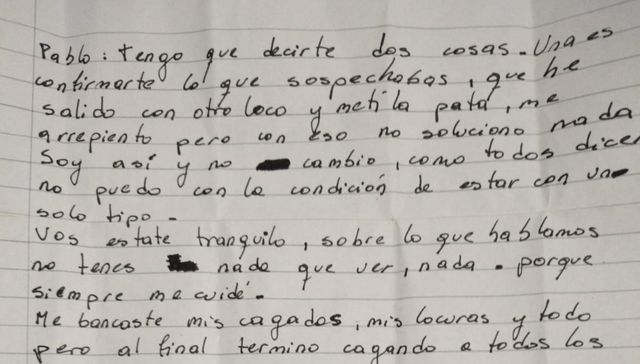 Pablo: tengo que decirte dos cosas. Una es
confirmarte lo que sospechabas, que he
salido con otro loco y metí la pata, me
arrepiento pero con eso no soluciono nada
Soy así y no cambio, como todos dicen
no puedo con la condición de estar con un
solo tipo.
Vos estate tranquilo, sobre lo que hablamos
no tenes nada que ver, nada. porque
siempre me cuidé.
Me bancaste mis cagadas, mis locuras y todo
pero al final termino cagando a todos los